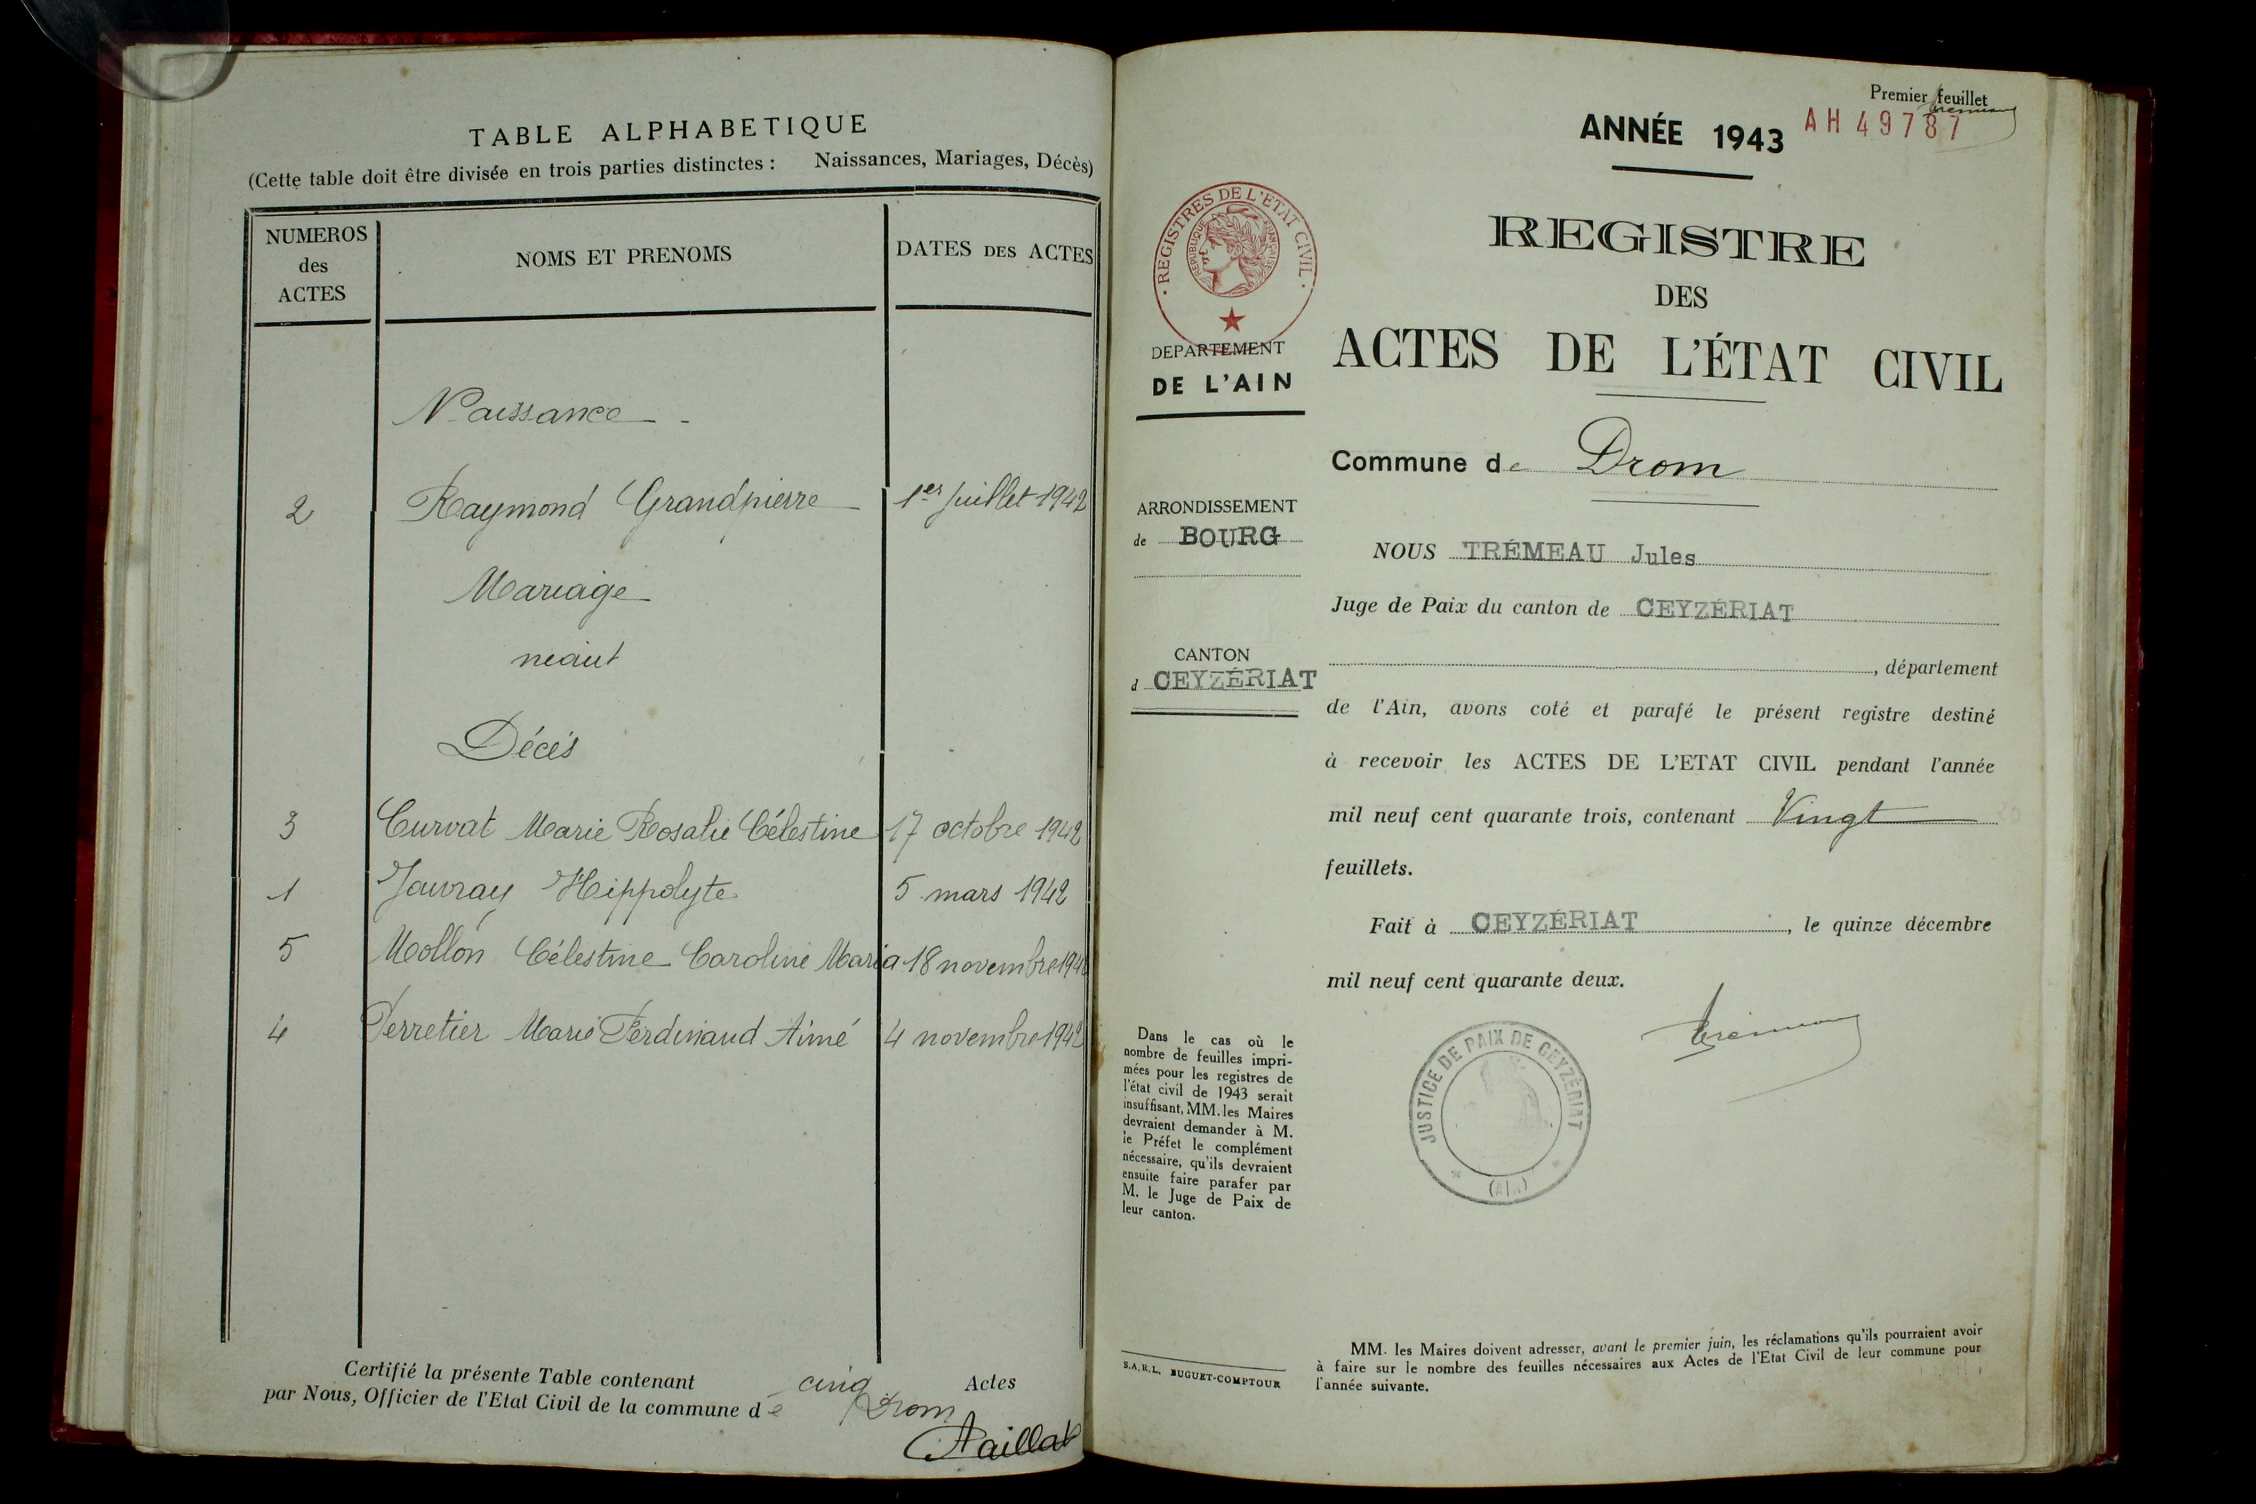 TABLE ALPHABETIQUE
(Cette table doit être divisée en trois parties distinctes : Naissances, Mariages, Décès)
NUMEROS des ACTES
NOMS ET PRENOMS
DATES DES ACTES
Naissance
2 Raymond Grandpierre 1er juillet 1942
Mariage
néant
Décès
3 Curvat Marie Rosalie Célestine 17 octobre 1942
1 Jouvray Hippolyte 5 mars 1942
5 Mollon Célestine Caroline Maria 18 novembre 1942
4 Perretier Marie Ferdinand Aimé 4 novembre 1942
Certifié la présente Table contenant cinq Actes
par Nous, Officier de l'Etat Civil de la commune de Drom
Paillat
Premier feuillet
ANNÉE 1943
AH 49787
REGISTRES DE L'ÉTAT CIVIL
RÉPUBLIQUE FRANÇAISE
REGISTRE
DES
ACTES DE L'ÉTAT CIVIL
DEPARTEMENT
DE L'AIN
Commune de Drom
ARRONDISSEMENT
de BOURG
CANTON
d CEYZÉRIAT
NOUS TRÉMEAU Jules
Juge de Paix du canton de CEYZÉRIAT
, département
de l'Ain, avons coté et parafé le présent registre destiné
à recevoir les ACTES DE L'ETAT CIVIL pendant l'année
mil neuf cent quarante trois, contenant Vingt
feuillets.
Fait à CEYZÉRIAT, le quinze décembre
mil neuf cent quarante deux.
Trémeau
JUSTICE DE PAIX DE CEYZÉRIAT
(AIN)
Dans le cas où le
nombre de feuilles impri-
mées pour les registres de
l'état civil de 1943 serait
insuffisant, MM. les Maires
devraient demander à M.
le Préfet le complément
nécessaire, qu'ils devraient
ensuite faire parafer par
M. le Juge de Paix de
leur canton.
S.A.R.L. BUGUET-COMPTOUR
MM. les Maires doivent adresser, avant le premier juin, les réclamations qu'ils pourraient avoir
à faire sur le nombre des feuilles nécessaires aux Actes de l'Etat Civil de leur commune pour
l'année suivante.